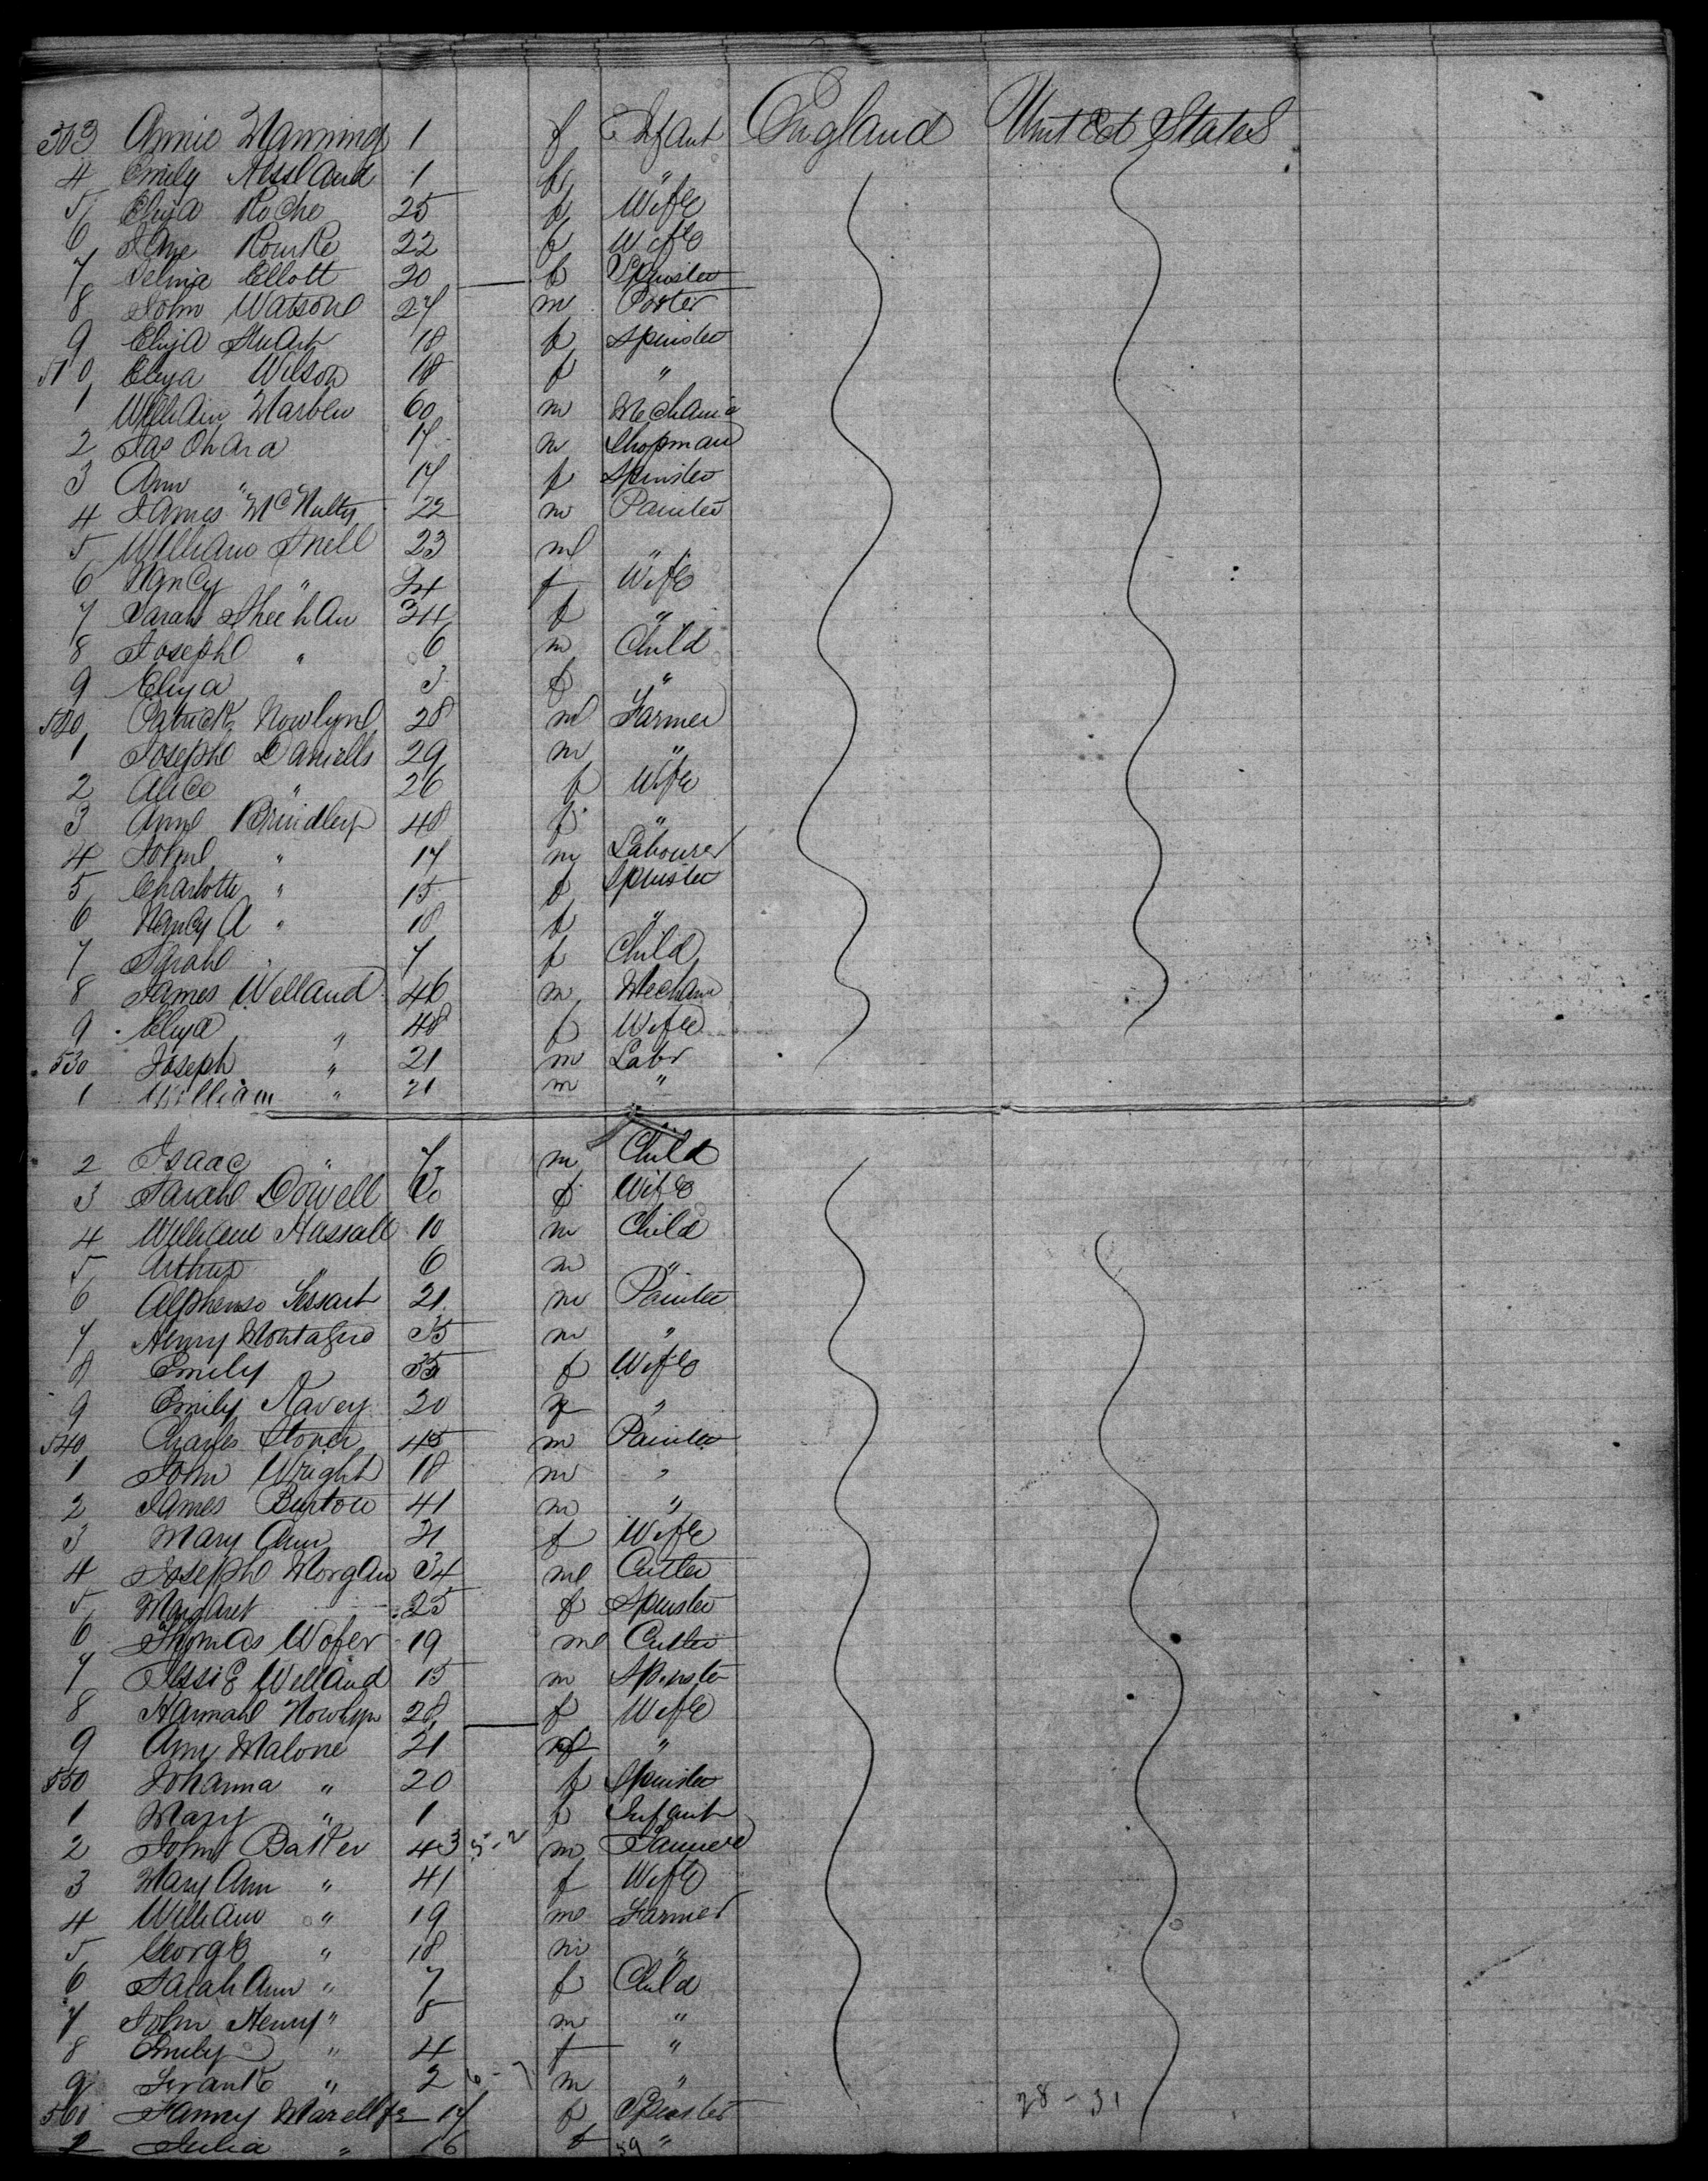 503 Annie Manning 1 f Infant England United States
4 Emily 1 f "
5 Eliza Roche 25 f Wife
6 Jane Rourke 22 f Wife
7 Ellott 20 f Spinster
8 John Watson 27 m Porter
9 Eliza Stuart 18 f Spinster
510 Eliza Wilson 18 f "
1 William 60 m Mechanic
2 Jas Ohara 17 m Shopman
3 Ann " 17 f Spinster
4 James McNulty 22 m Painter
5 William Snell 23 m "
6 Nancy " 24 f Wife
7 Sarah Sheehan 34 f "
8 Joseph " 6 m Child
9 Eliza 3 f "
520 Patrick Nowlyn 28 m Farmer
1 Joseph Daniells 29 m "
2 Alice " 26 f Wife
3 Ann Brindley 48 f "
4 John " 17 m Labourer
5 Charlotte " 15 f Spinster
6 Nancy A " 18 f "
7 Sarah " 7 f Child
8 James Welland 46 m Mechani
9 Eliza " 48 f Wife
530 Joseph " 21 m Labr
1 William " 21 m "
2 Isaac " 7 m Child
3 Sarah Dowell 60 f Wife
4 William Hassall 10 m Child
5 Arthur " 6 m "
6 Alphenso 21 m Painter
7 Henry Montague 35 m "
8 Emily 35 f Wife
9 Emily 20 f "
540 Charles Stoner 45 m Painter
1 John Wright 18 m "
2 James Burton 41 m "
3 Mary Ann f Wife
4 Joseph Morgan 34 m Cutler
5 Margaret 25 f Spinster
6 Thomas Wofer 19 m Cutler
7 Jessie Welland 15 m Spinster
8 Hannah Nowlyn 28 f Wife
9 Ann Malone 21 f "
550 Johanna " 20 f Spinster
1 Mary " 1 f Infant
2 John Barker 43 5-2 m
3 Mary Ann " 41 f Wife
4 William " 19 m Farmer
5 George " 18 m "
6 Sarah Ann " 7 f Child
7 John Henry " 8 m "
8 Emily " 4 f "
9 Frank " 2 m "
560 Fanny 17 f Spinster 28-31
1 Julia " 16 f 59 "